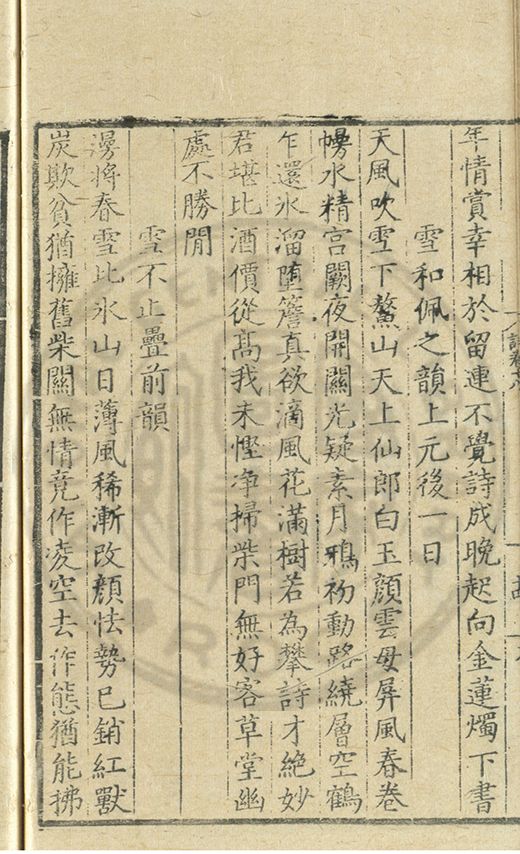 年情賞幸相於留連不覺詩成晚起向金蓮燭下書
雪和佩之韻上元後一日
天風吹雪下鰲山天上仙郎白玉顏雲母屏風春卷
幔水精宮闕夜開關光疑素月鴉初動路繞層空鶴
乍還氷溜墮簷真欲滴風花滿樹若為攀詩才絕妙
君堪比酒價從髙我未慳净掃柴門無好客草堂幽
處不勝閒
雪不止疊前韻
漫將春雪比氷山日薄風稀漸改顏怯勢已銷紅獸
炭欺貧猶擁舊柴關無情竟作凌空去作態猶能拂